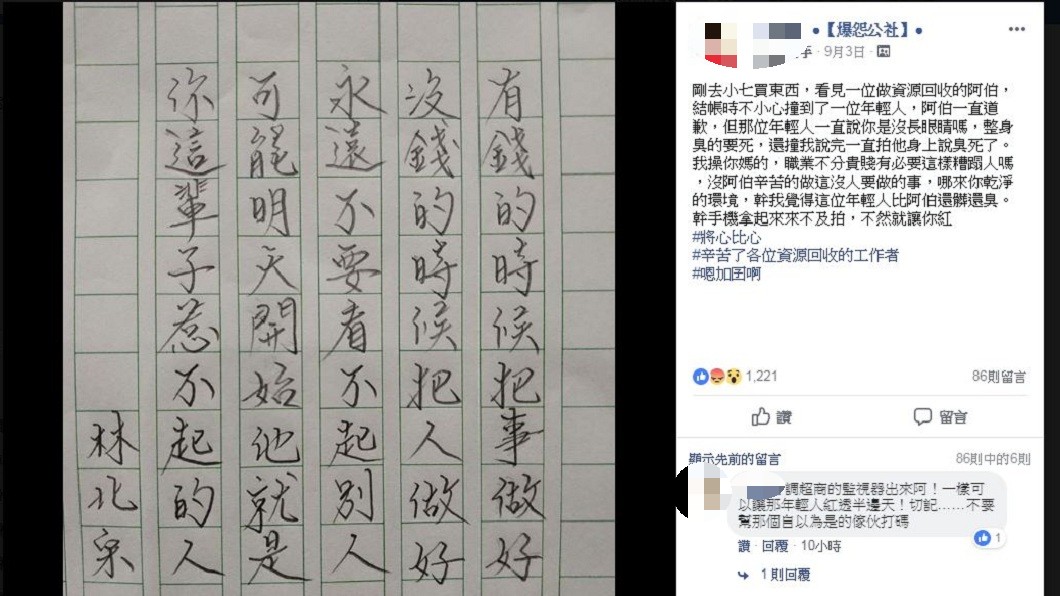 有錢的時候把事做好
沒錢的時候把人做好
永遠不要看不起別人
可能明天開始他就是
你這輩子惹不起的人
林北宋
•【爆怨公社】•
9月3日
剛去小七買東西，看見一位做資源回收的阿伯，
結帳時不小心撞到了一位年輕人，阿伯一直道
歉，但那位年輕人一直說你是沒長眼睛嗎，整身
臭的要死，還撞我說完一直拍他身上說臭死了。
我操你媽的，職業不分貴賤有必要這樣糟蹋人嗎
，沒阿伯辛苦的做這沒人要做的事，哪來你乾淨
的環境，幹我覺得這位年輕人比阿伯還髒還臭。
幹手機拿起來來不及拍，不然就讓你紅
#將心比心
#辛苦了各位資源回收的工作者
#嗯加囝啊
1,221
86則留言
讚
留言
顯示先前的留言
86則中的6則
調超商的監視器出來阿！一樣可
以讓那年輕人紅透半邊天！切記……不要
幫那個自以為是的傢伙打碼
1
讚 · 回覆 · 10小時
1則回覆